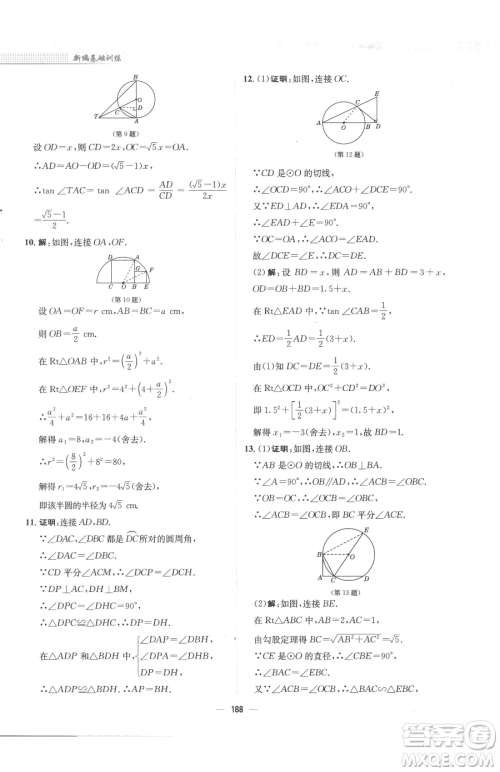 新编基础训练
(第9题)
设 OD=x,则 CD=2x,OC=√5x=OA.
∴AD=AO-OD=(√5-1)x.
∴tan∠TAC=tan∠ACD=AD/CD=(√5-1)x/2x
=(√5-1)/2.
10. 解:如图,连接 OA,OF.
(第10题)
设 OA=OF=r cm,AB=a cm,
则 OB=a/2 cm.
在 Rt△OAB 中,r²=(a/2)²+a².
在 Rt△OEF 中,r²=4²+(4+a/2)²,
∴a²/4+a²=16+16+4a+a²/4.
解得 a₁=8,a₂=-4(舍去).
∴r²=(a/2)²+8²=80.
解得 r₁=4√5,r₂=-4√5(舍去).
即该半圆的半径为 4√5 cm.
11. 证明:连接 AD,BD.
∵∠DAC,∠DBC 都是DC所对的圆周角,
∴∠DAC=∠DBC.
∵CD 平分∠ACM,∴∠DCP=∠DCH.
∵DP⊥AC,DH⊥BM,
∴∠DPC=∠DHC=90°.
∴△DPC≌△DHC.∴DP=DH.
在△ADP 和△BDH 中,
∠DAP=∠DBH,
∠DPA=∠DHB,
DP=DH,
∴△ADP≌△BDH.∴AP=BH.
12. (1)证明:如图,连接 OC.
(第12题)
∵CD 是⊙O 的切线,
∴∠OCD=90°.∴∠ACO+∠DCE=90°.
又∵ED⊥AD,∴∠EDA=90°.
∴∠EAD+∠E=90°.
又∵OC=OA,∴∠ACO=∠EAD.
故∠DCE=∠E.
(2)解:设 BD=x,则 AD=AB+BD=3+x,
OD=OB+BD=1.5+x.
在 Rt△EAD 中,∵tan∠CAB=1/2,
∴ED=1/2AD=1/2(3+x).
由(1)知∠DCE=∠E,∴CD=ED=1/2(3+x).
在 Rt△OCD 中,OC²+CD²=OD²,
即 1.5²+[1/2(3+x)]²=(1.5+x)².
解得 x₁=1,x₂=-3(舍去).故 BD=1.
13. (1)证明:如图,连接 OB.
∵AB 是⊙O 的切线,∴OB⊥AB.
∵∠A=90°,∴OB∥AC.∴∠OBC=∠ACB.
∵OB=OC,∴∠OBC=∠OCB.
∴∠OCB=∠ACB.∴CB 平分∠ACE.
(第13题)
(2)解:如图,连接 BE.
在 Rt△ABC 中,∵AB=3,AC=4,
由勾股定理得 BC=√(AB²+AC²)=5.
∵CE 是⊙O 的直径,∴∠EBC=90°.
∴∠A=∠EBC.
又∵∠ACB=∠BCE,∴△ABC∽△BEC.
188